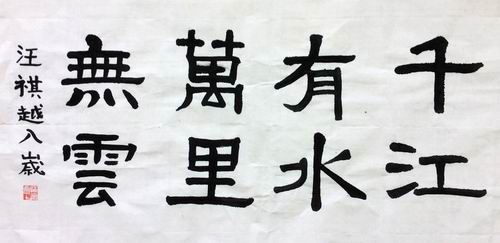 千江
有水
萬里
無雲
汪祺越八歲